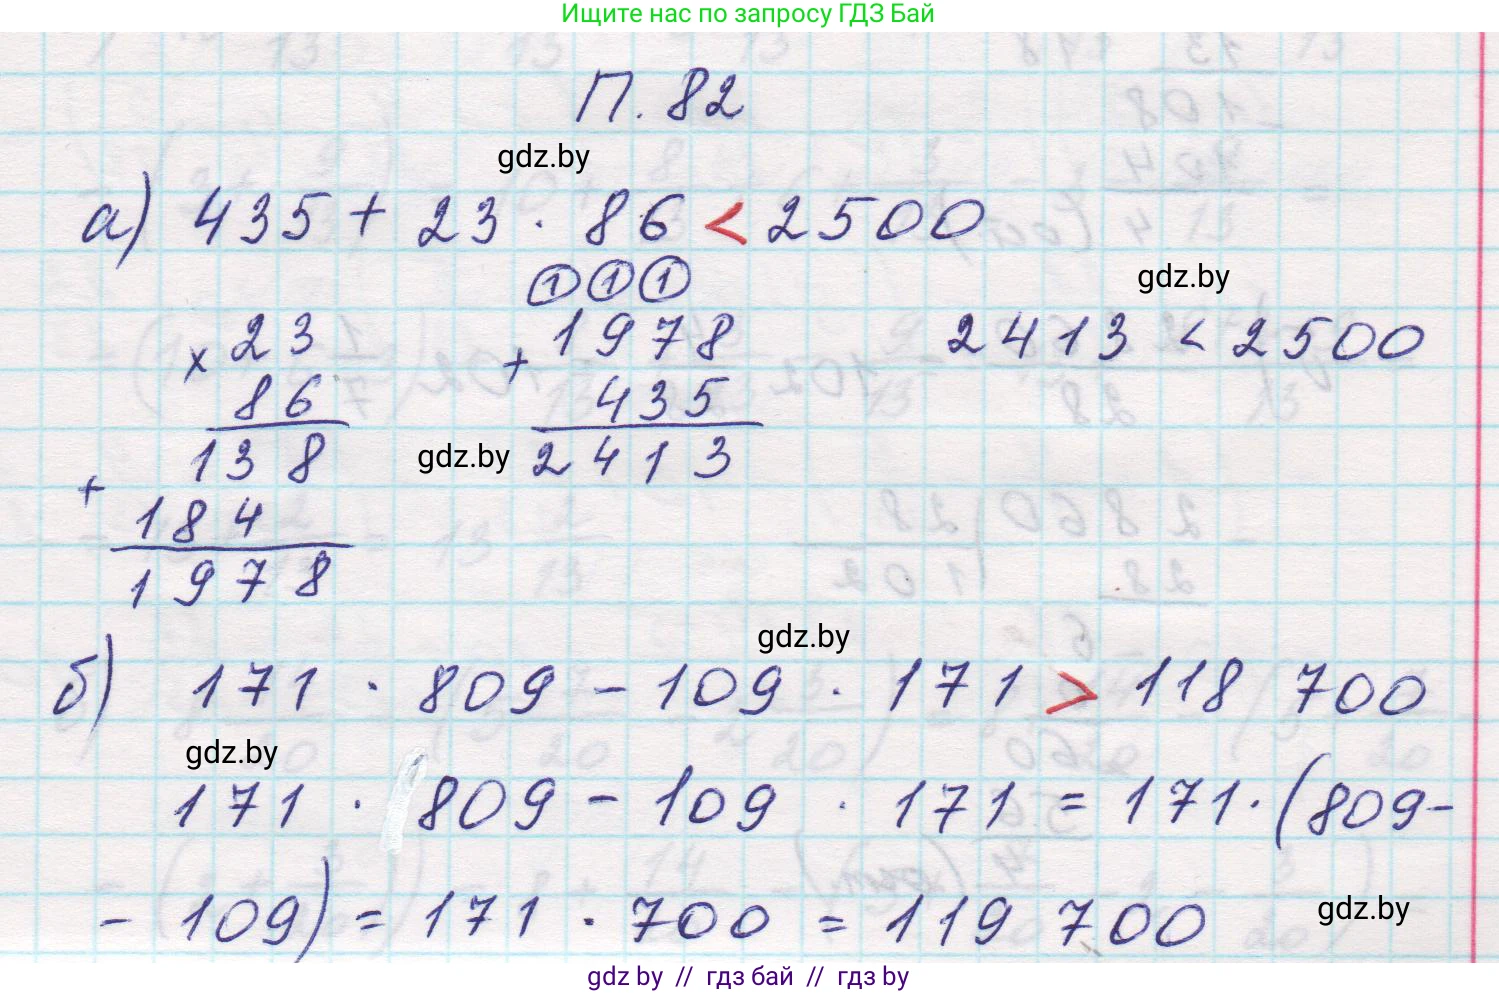 Ищите нас по запросу ГДЗ Бай
П. 82
gdz.by
а) 435 + 23 · 86 < 2500
gdz.by
1 1 1
× 23 + 1978 2413 < 2500
86 435
138 gdz.by 2413
+ 184
1978
gdz.by
б) 171 · 809 - 109 · 171 > 118 700
gdz.by
171 · 809 - 109 · 171 = 171 · (809 -
- 109) = 171 · 700 = 119 700
gdz.by
gdz.by // гдз бай // гдз by